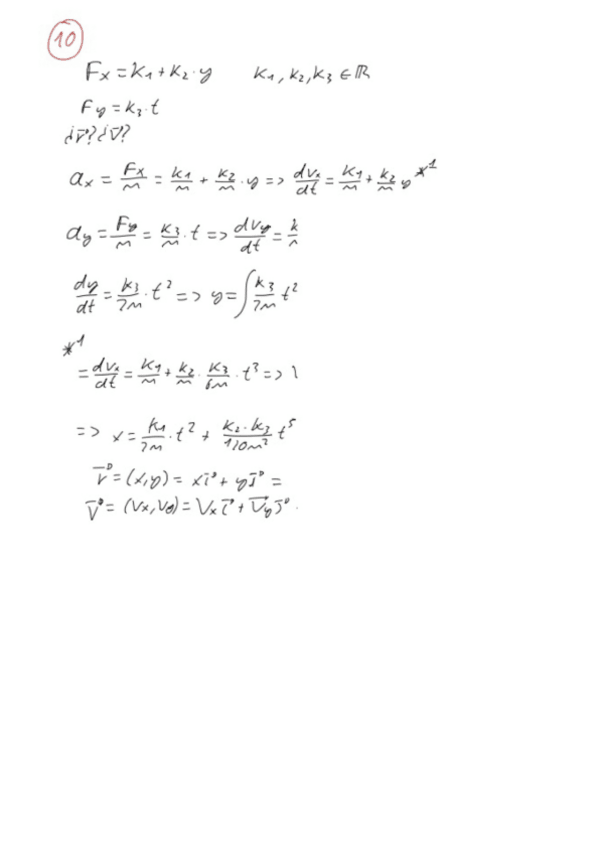 10
Fx = K1 + K2 · y   K1, K2, K3 ∈ ℝ
Fy = K3 · t
¿r⃗? ¿v⃗?
ax = Fx/m = K1/m + K2/m · y => dvx/dt = K1/m + K2/m y *1
ay = Fy/m = K3/m · t => dvy/dt =
dy/dt = K3/2m · t² => y = ∫ K3/2m t²
*1
= dvx/dt = K1/m + K2/m · K3/6m · t³ =>
=> x = K1/2m · t² + K2·K3/120m² t⁵
r⃗ = (x,y) = x i⃗ + y j⃗ =
v⃗ = (Vx, Vy) = Vx i⃗ + Vy j⃗ .